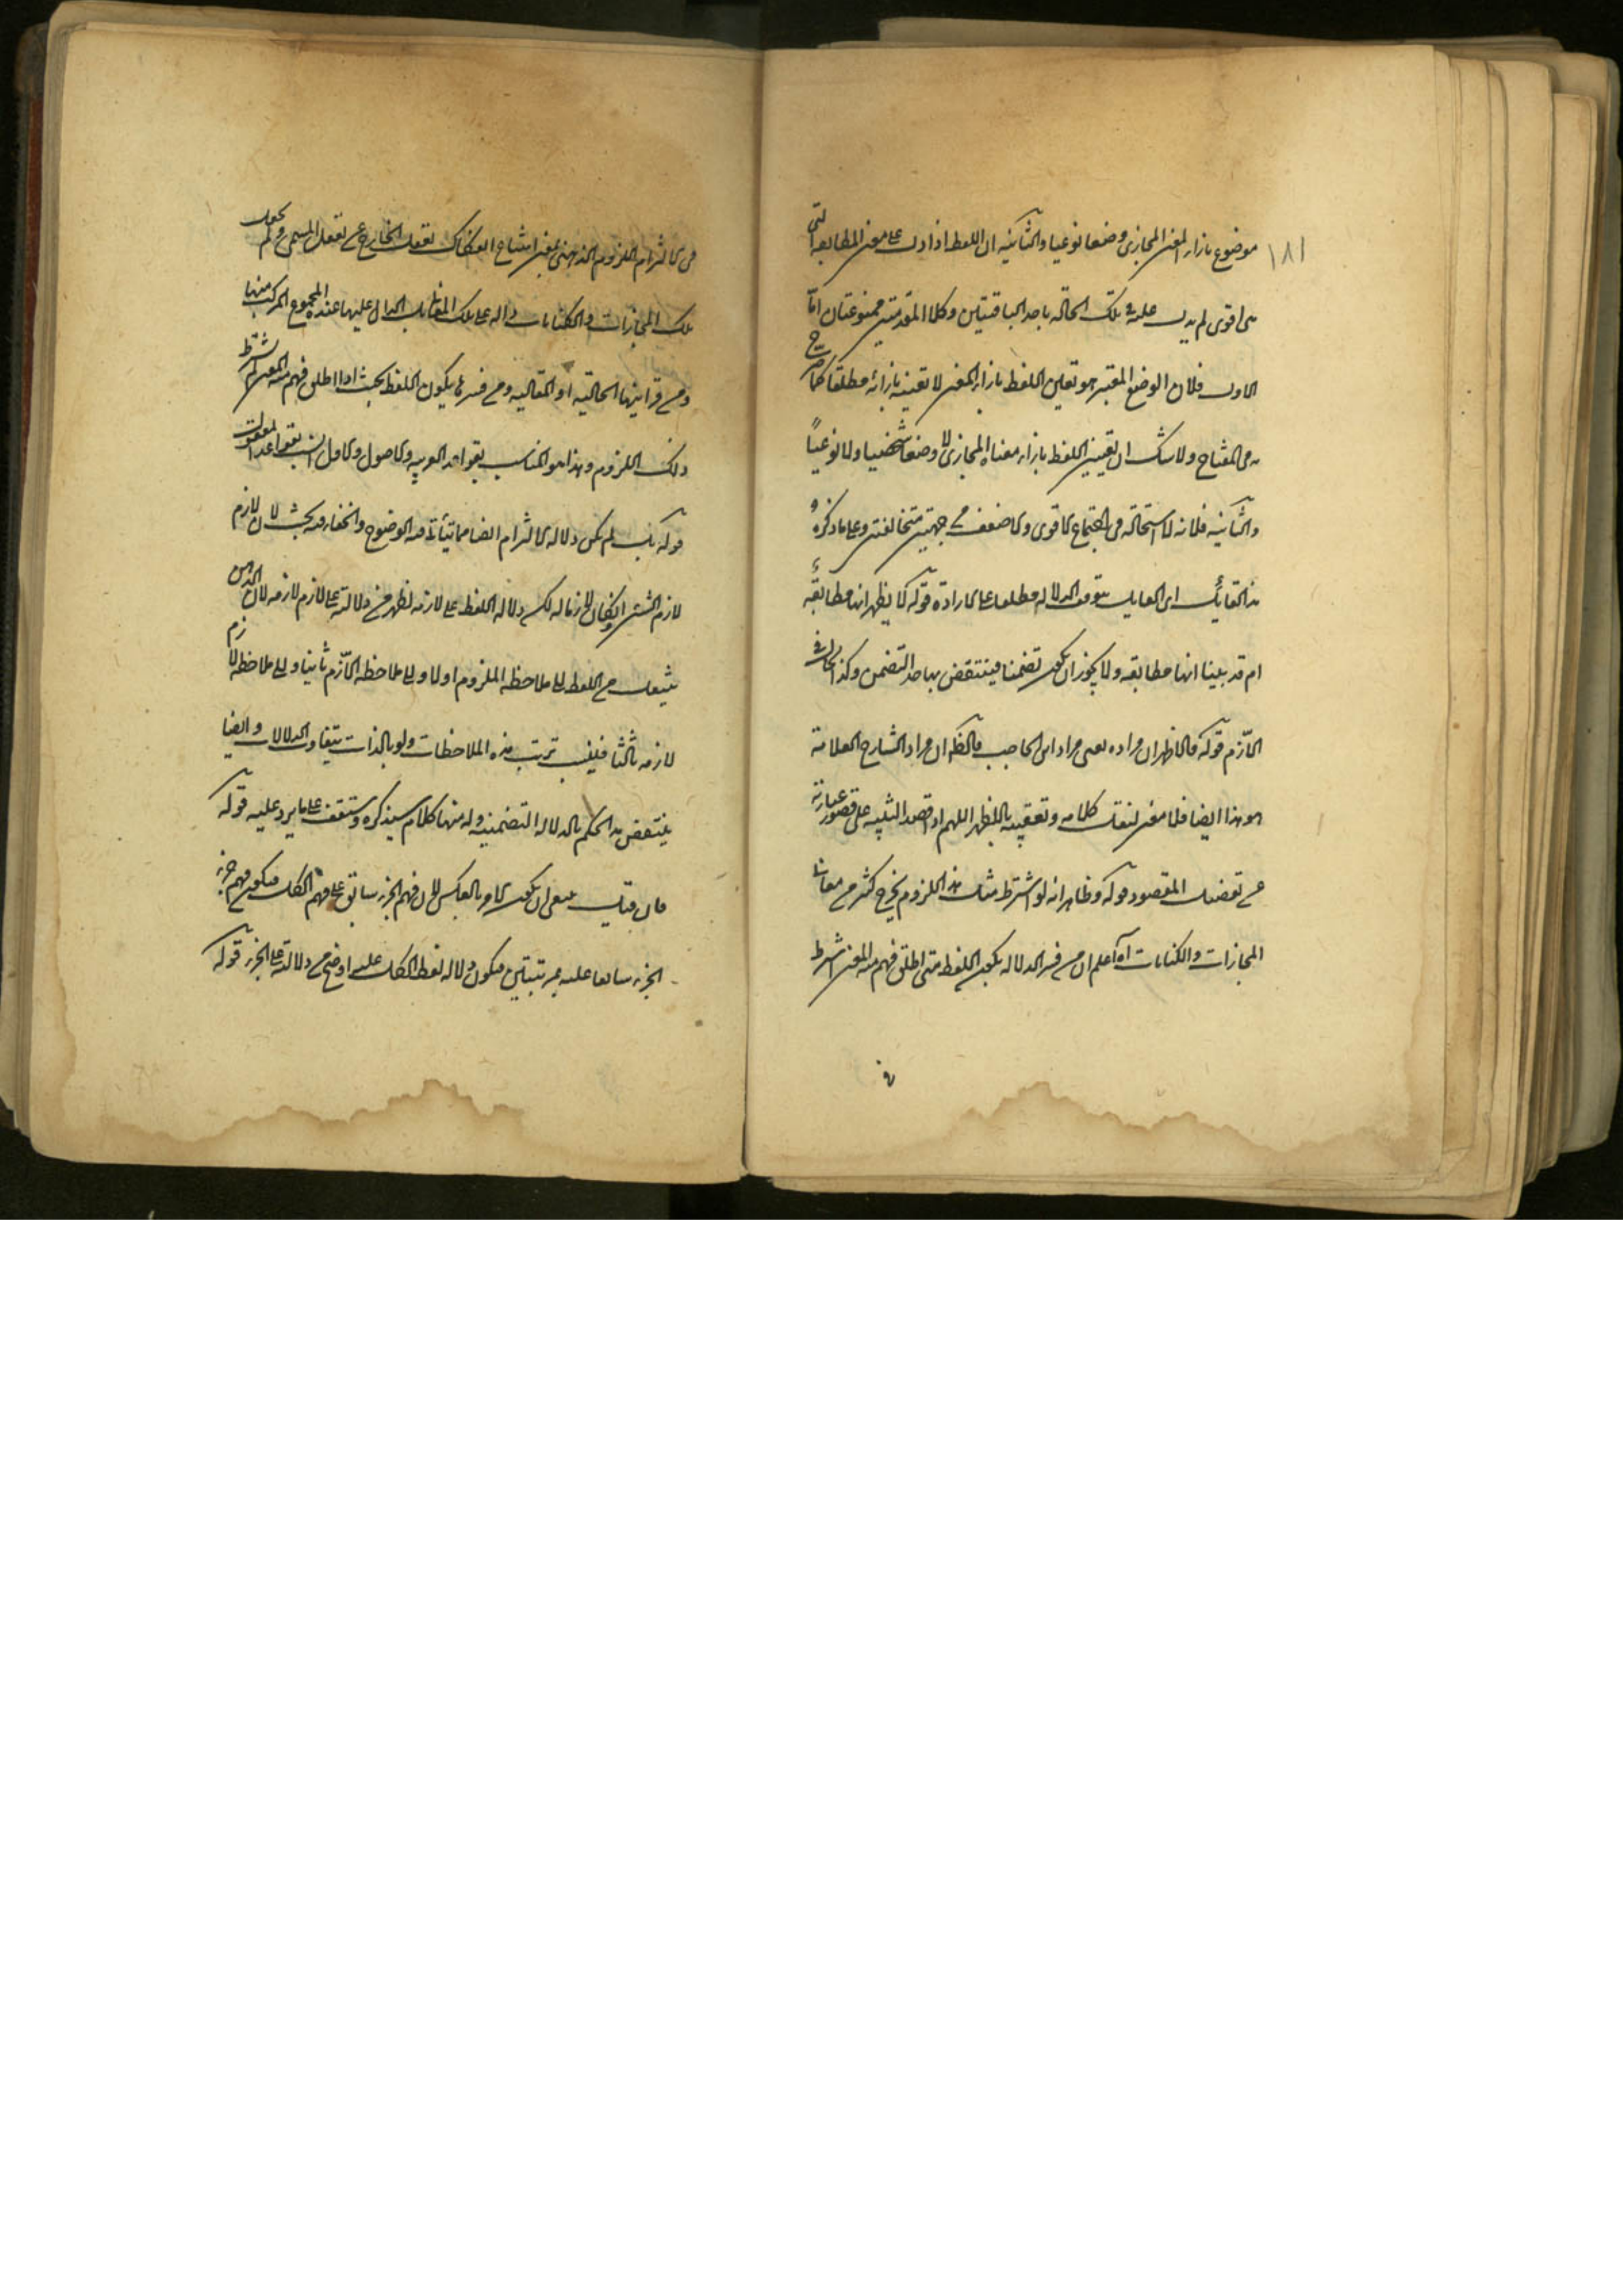 ١٨١
موضوع بازاء المعنى المجازى وضعا نوعيا والثانية ان اللفظ اذا دل على معنى المطابقة التى
هى اقوى لم يدل عليه فى تلك الحالة باحد الباقيتين وكلا المقدمتين ممنوعتان اما
الاولى فلان الوضع المعتبر هو تعيين اللفظ بازاء المعنى لا تعينه بازائه مطلقا كما صرح
به فى المفتاح ولا شك ان تعيين اللفظ بازاء معناه المجازى لا وضعا شخصيا ولا نوعياً
والثانية فلانه لا استحالة فى اجتماع الاقوى والاضعف من جهتين متخالفتين وعلى ما ذكره
هذا القائل اى القايل بتوقف الدلالة مطلقا على الارادة قوله لا يظهر انها مطابقة
ام قد بينا انها مطابقة ولا يجوز ان يكون تضمنا فينتقض بها حد التضمن وكذا الحال فى
الالتزام قوله فالظاهر ان مراده يعنى مراد ابن الحاجب فالظ ان مراد الشارح العلامة
هو هذا ايضا فلا معنى لنقل كلامه وتعقيبه باللظهر اللهم اذا قصد التنبيه على قصور عبارته
عن تفصيل المقصود قوله وظاهر انه لو اشترط مثل هذا اللزوم يخرج كثير من معانى
المجازات والكنايات آه اعلم ان من فسر الدلالة بكون اللفظ متى اطلق فهم منه المعنى اشترط
فى الالتزام اللزوم الذهنى بمعنى امتناع انفكاك تعقل الخارج عن تعقل المسمى ولم يجعل
تلك المجازات والكنايات دالة على تلك المعانى بل الدال عليها عنده المجموع المركب منها
ومن قراينها الحالية او المقالية ومن فسرها بكون اللفظ بحيث اذا اطلق فهم منه المعنى لم يشترط
ذلك اللزوم وهذا هو المناسب بقواعد العربية والاصول والاول انسب بقواعد المعقول
قوله بل لم يكن دلالة الالتزام ايضا مما يتأتى فيه الوضوح والخفاء فيه بحث لان لازم
لازم الشئ وان كان لازما له لكن دلالة اللفظ على لازمه اظهر من دلالته على لازم لازمه لان الذهن
ينتقل من اللفظ الى ملاحظة الملزوم اولا والى ملاحظة اللازم ثانيا والى ملاحظة لازم
لازمه ثالثا فبسبب ترتب هذه الملاحظات ولو بالذات يتفاوت الدلالات وايضا
ينتقض هذا الحكم بالدلالة التضمنية وله منها كلام سيذكره وستقف على ما يرد عليه قوله
فان قيل ينبغى ان يكون الامر بالعكس لان فهم الجزء سابق على فهم الكل فيكون فهم جزء
الجزء سابقا عليه بمرتبتين فيكون دلالة لفظ الكل عليه اوضح من دلالته على الجزء قوله